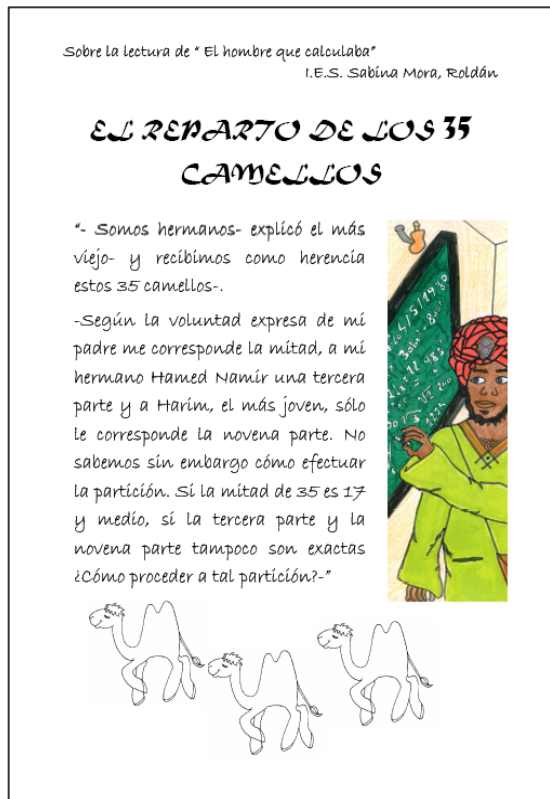 Sobre la lectura de " El hombre que calculaba"
I.E.S. Sabina Mora, Roldán
EL REPARTO DE LOS 35
CAMELLOS
"- Somos hermanos- explicó el más
viejo- y recibimos como herencia
estos 35 camellos-.
-Según la voluntad expresa de mi
padre me corresponde la mitad, a mi
hermano Hamed Namir una tercera
parte y a Harim, el más joven, sólo
le corresponde la novena parte. No
sabemos sin embargo cómo efectuar
la partición. Si la mitad de 35 es 17
y medio, si la tercera parte y la
novena parte tampoco son exactas
¿Cómo proceder a tal partición?-"